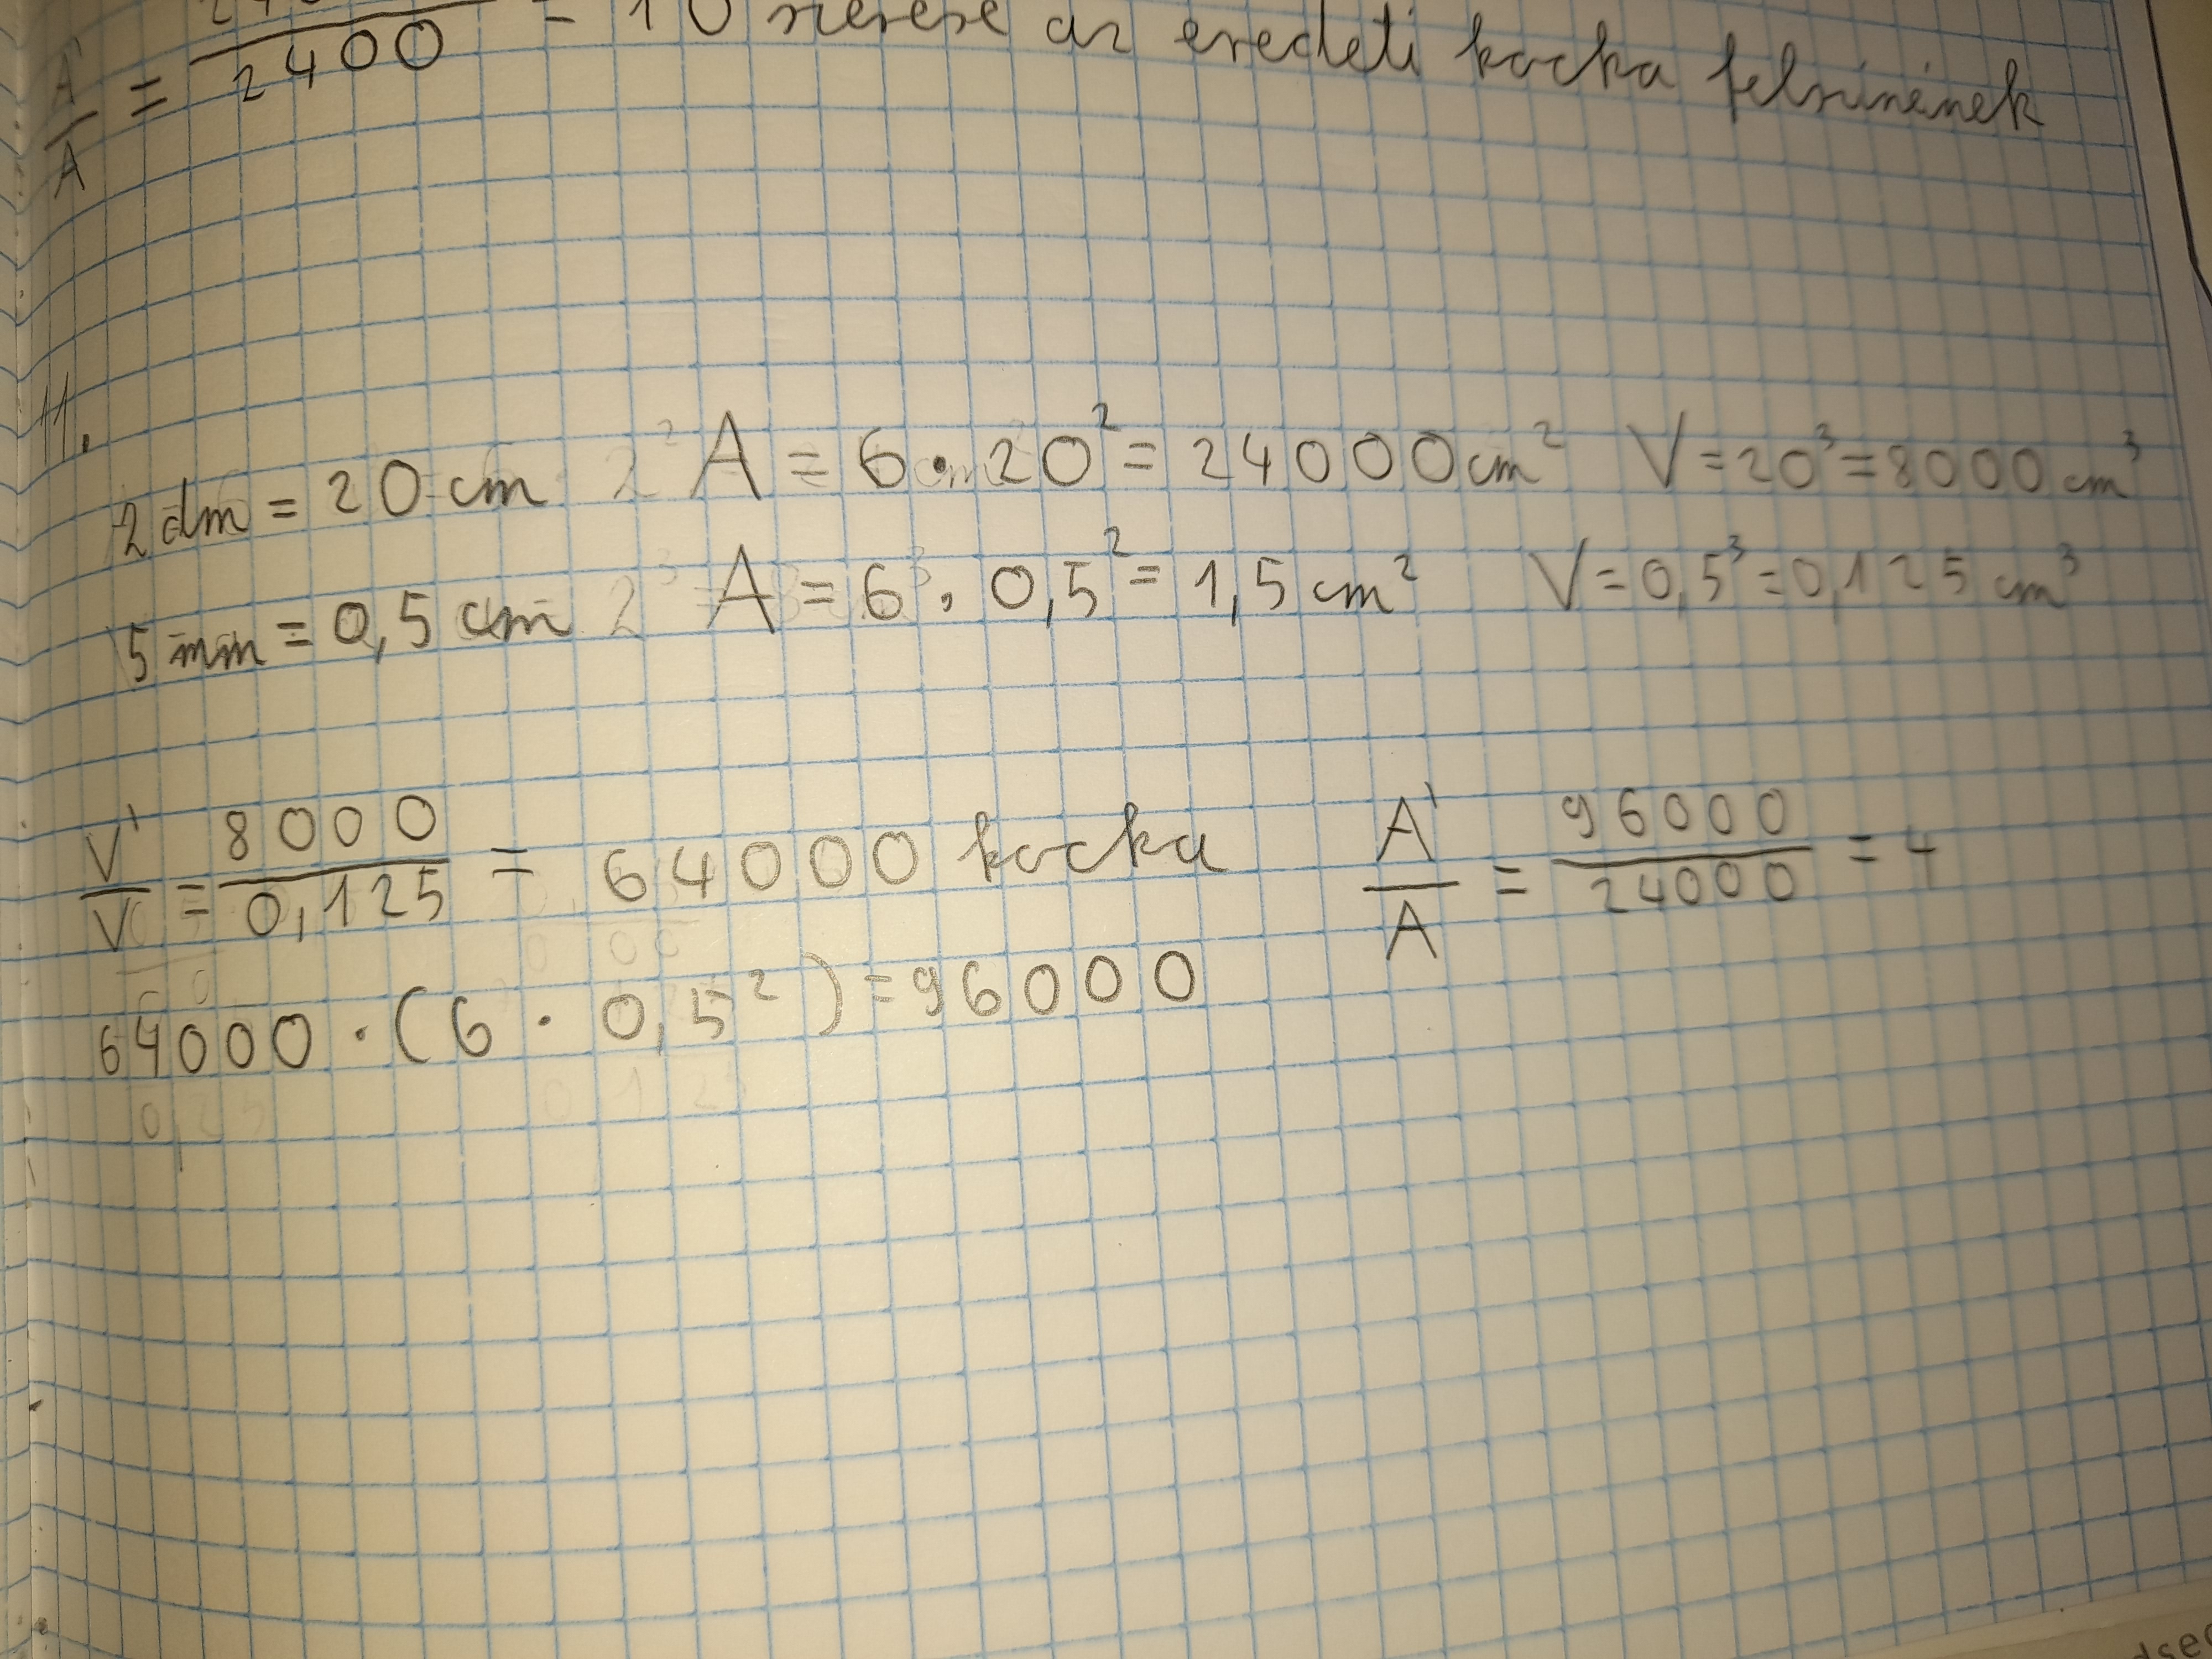 A'/A = 2400 = 10 szerese az eredeti kocka felszínének
11.
2 dm = 20 cm A = 6 · 20² = 24000 cm² V = 20³ = 8000 cm³
5 mm = 0,5 cm A = 6 · 0,5² = 1,5 cm² V = 0,5³ = 0,125 cm³
V'/V = 8000/0,125 = 64000 kocka A'/A = 96000/24000 = 4
64000 · (6 · 0,5²) = 96000